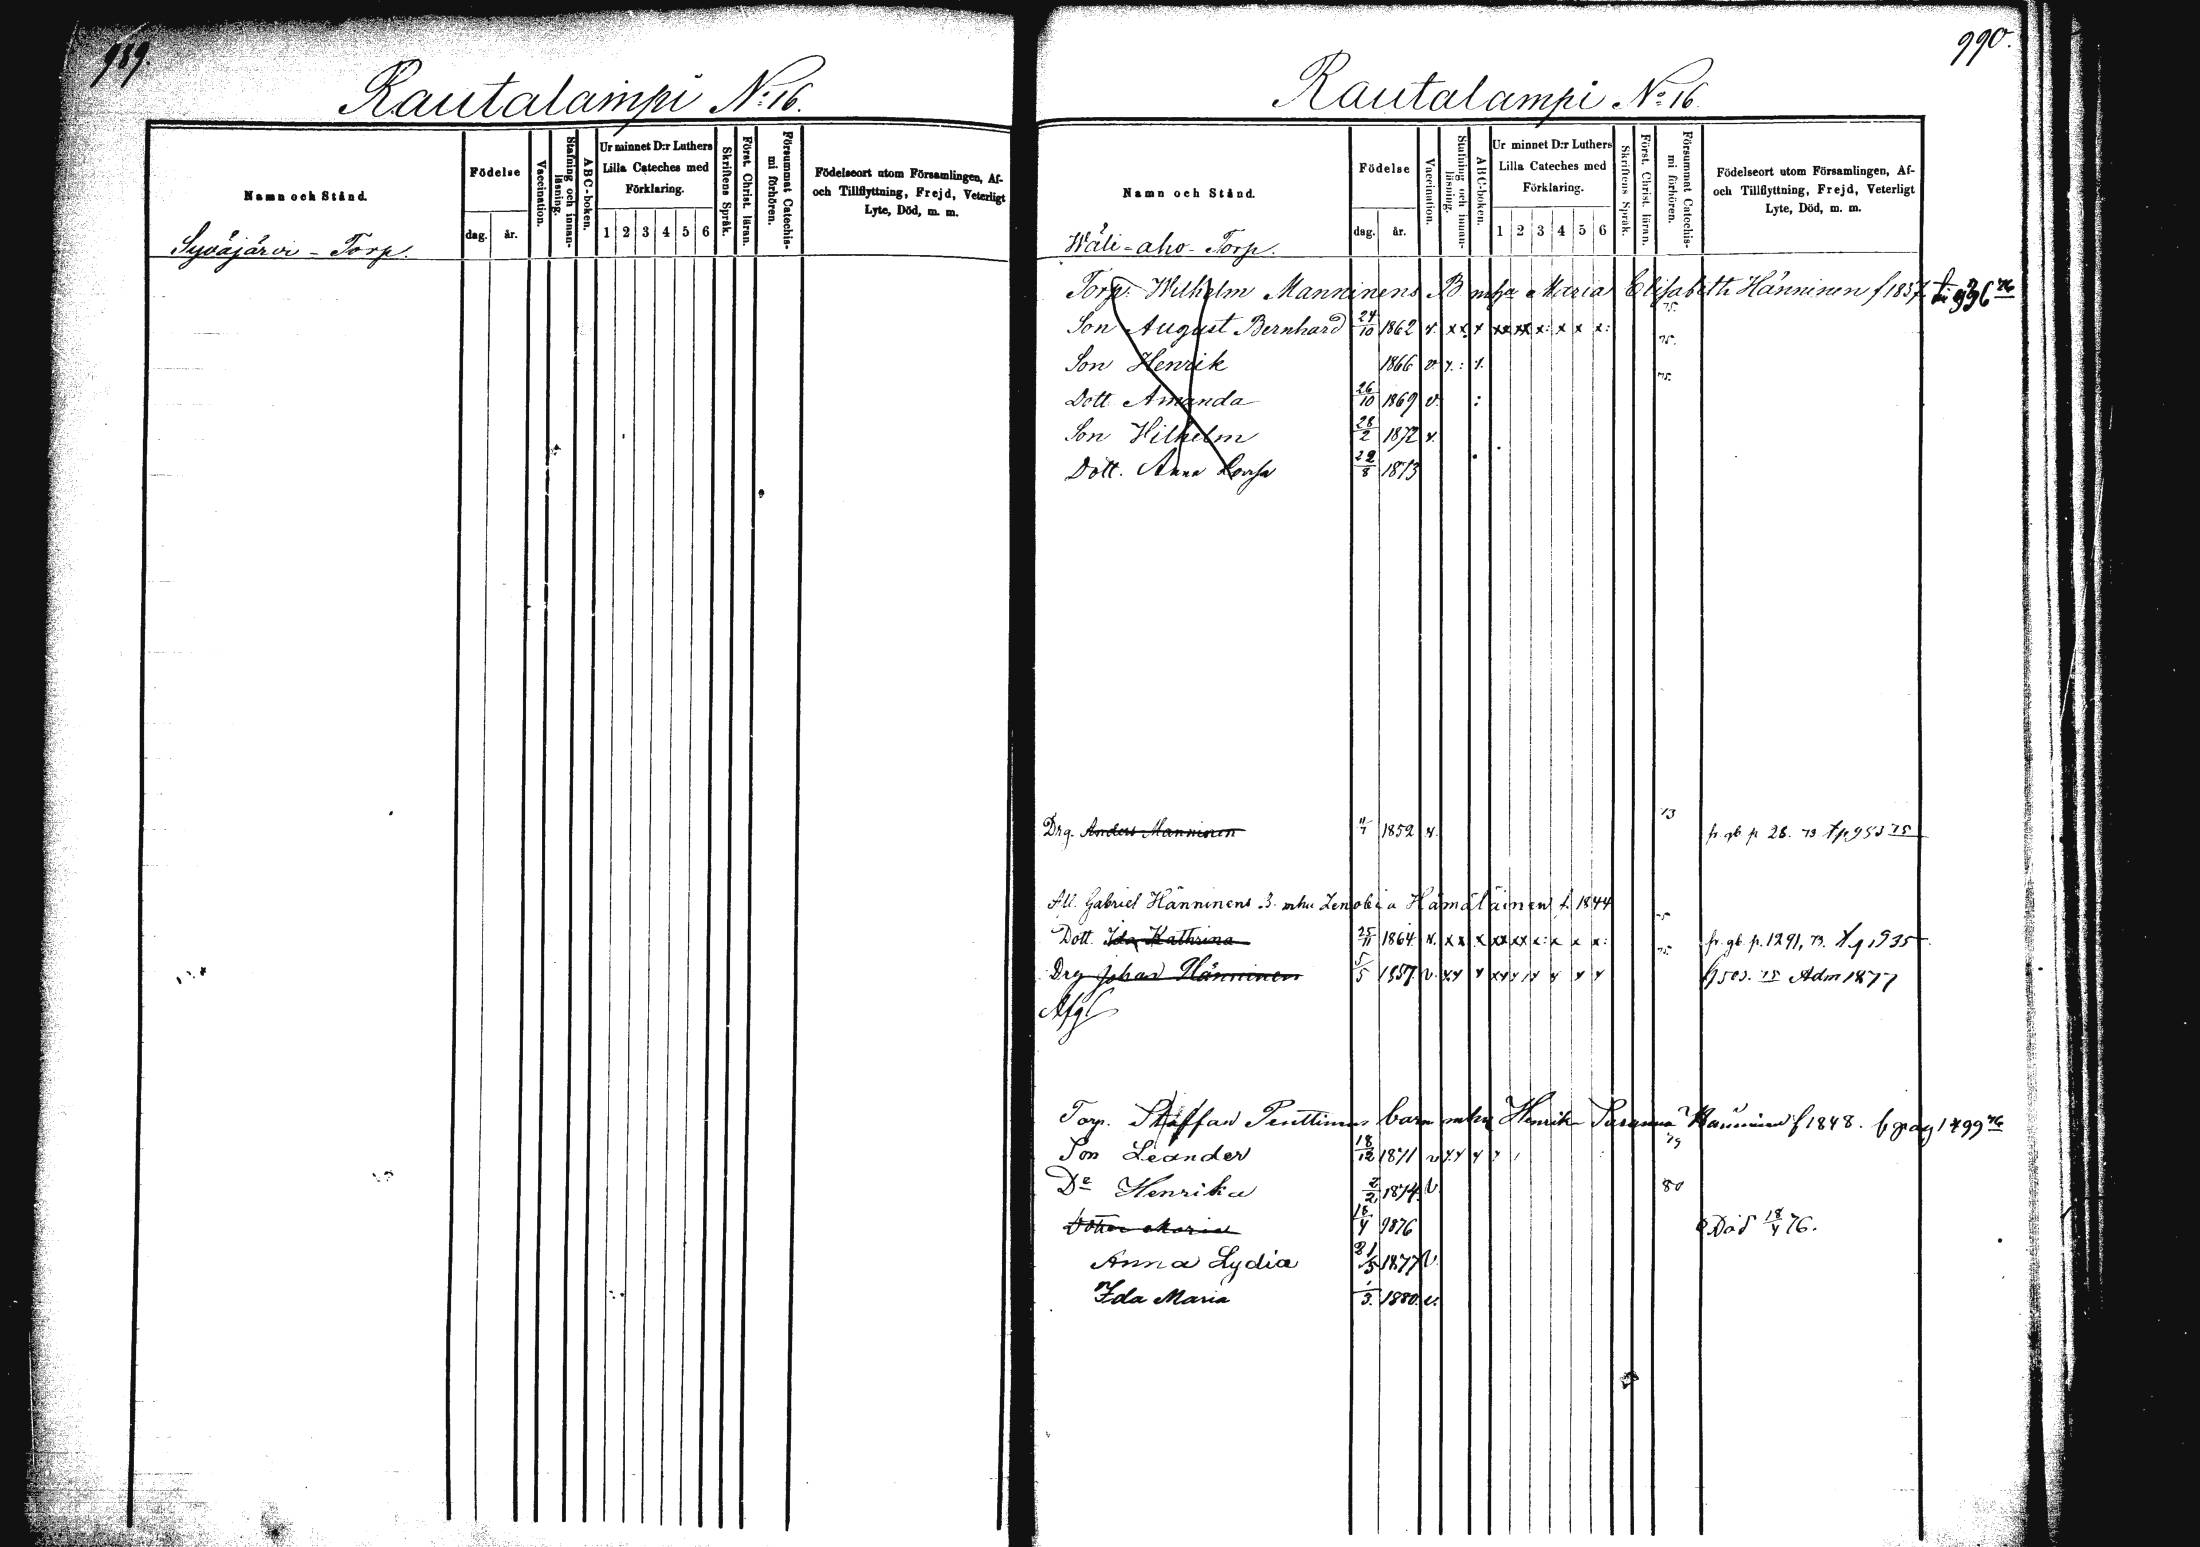 989.
Rautalampi No:16.
Namn och Stånd.
Födelse
dag.
år.
Vaccination.
Stafning och innanläsning.
ABC-boken.
Ur minnet D:r Luthers
Lilla Cateches med
Förklaring.
1 2 3 4 5 6
Skriftens Språk.
Först. Christ. läran.
Försummat Catechismi förhören.
Födelseort utom Församlingen, Af-
och Tillflyttning, Frejd, Veterligt
Lyte, Död, m. m.
Syväjärvi - Torp.
990.
Rautalampi No:16.
Namn och Stånd.
Födelse
dag.
år.
Vaccination.
Stafning och innanläsning.
ABC-boken.
Ur minnet D:r Luthers
Lilla Cateches med
Förklaring.
1 2 3 4 5 6
Skriftens Språk.
Först. Christ. läran.
Försummat Catechismi förhören.
Födelseort utom Församlingen, Af-
och Tillflyttning, Frejd, Veterligt
Lyte, Död, m. m.
Wäli-aho- Torp.
Torp. Wilhelm Manninens B mha Maria Elisabeth Hänninen f 1837
75.
Son August Bernhard 24/10 1862 v. xx x xx xx x: x x x:
75.
Son Henrik 1866 v x.: x.
75.
Dott Amanda 26/10 1869 v. :
Son Wilhelm 28/2 1872 v.
Dott. Anna Lovisa 22/8 1873
73
Drg. Anders Manninen 1852 v. fr. gb p 28. 73 tp 953 75
Afl. Gabriel Hänninens B. mhu Zenobia Hämäläinen f. 1844
75
Dott. Ida Kathrina 25/11 1864 v. xx x xx xx x: x x x: fr. gb. p. 1291, 73. t p 935
75.
Drg Johan Hänninen 5/5 1857 v. xx x p 503. 75 Adm 1877
Afg.
Torp. Staffan Penttinens barn mhu Henrika Susanna Hänninen f 1848. fr pag 1499 76
79
Son Leander 18/12 1871 v xx x
Do Henrika 2/2 1874 v 80
Dotter Maria 18/4 1876 Död 18/4 76.
Anna Lydia 31/5 1877 v.
Ida Maria 1/3. 1880. v.